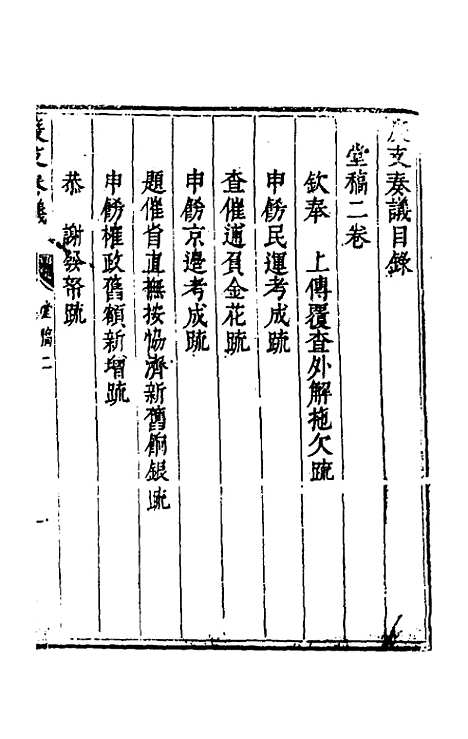 度支奏議目錄
堂稿二卷
欽奉　上傳覆查外解拖欠疏
申飭民運考成疏
查催逋負金花疏
申飭京邊考成疏
題催省直撫按協濟新舊餉銀疏
申飭榷政舊額新增疏
恭　謝發帑疏
度支奏議
堂稿二
一